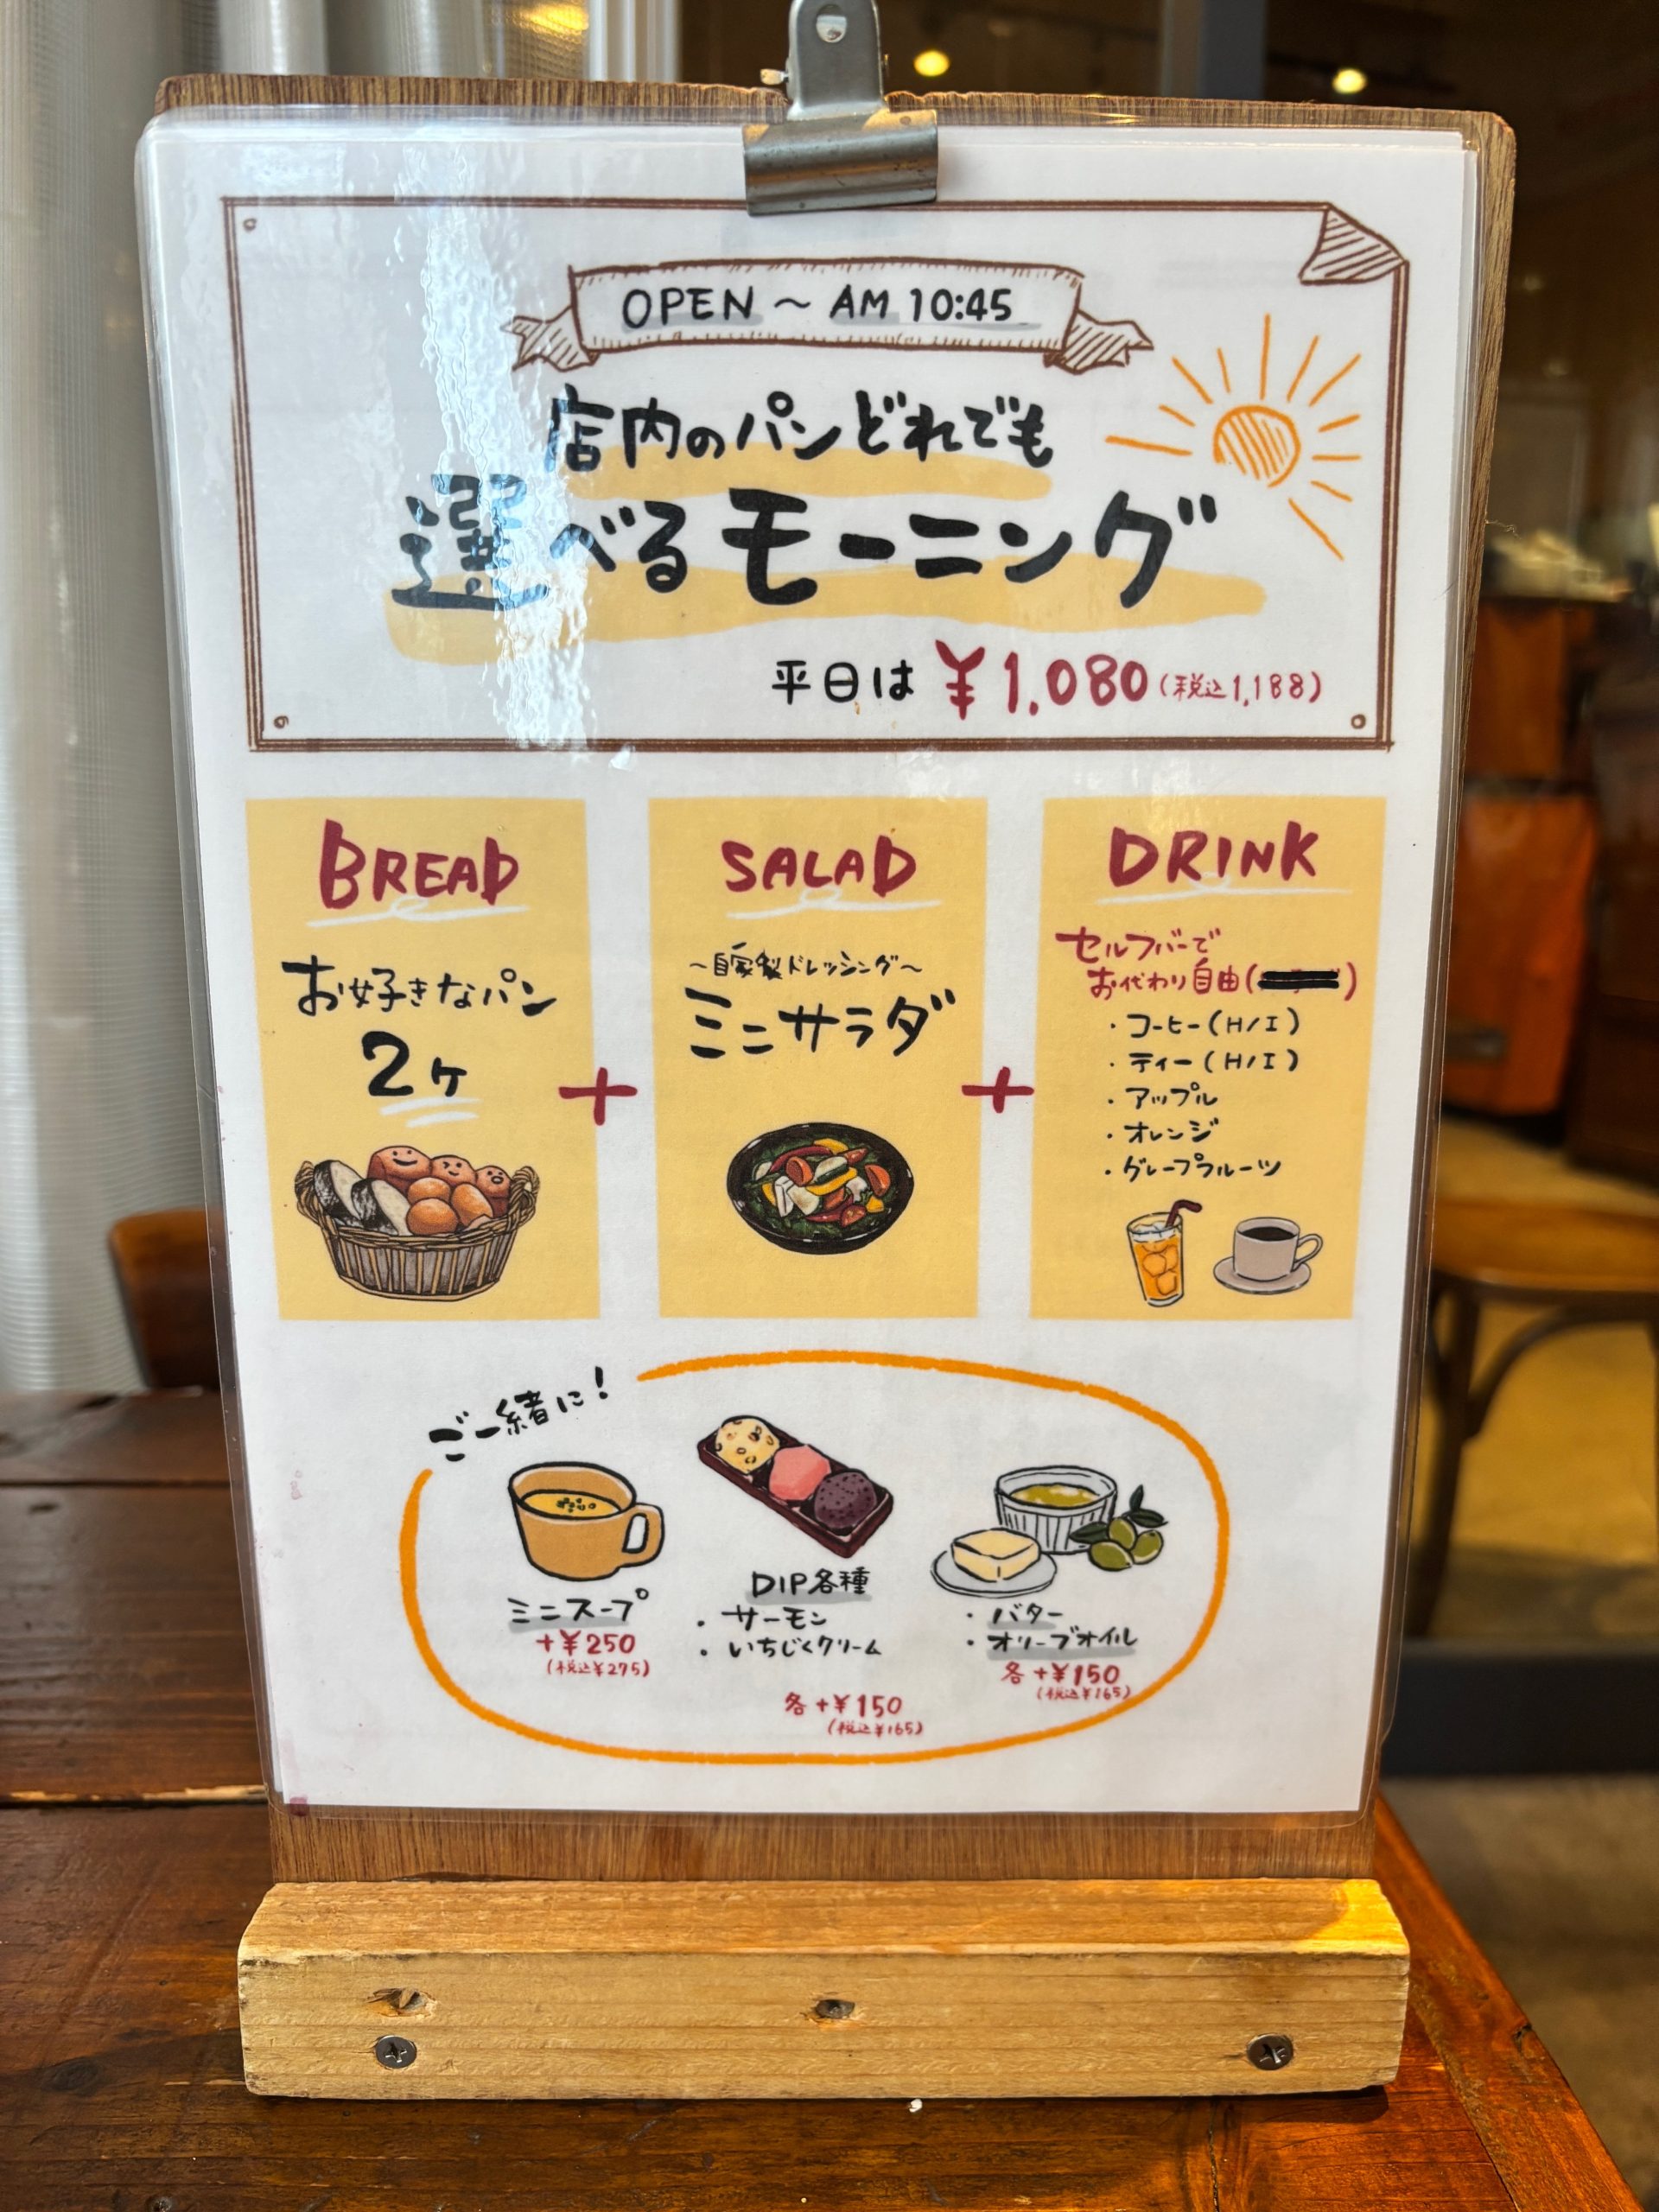 OPEN ～ AM 10:45
店内のパンどれでも
選べるモーニング
平日は ¥1.080 (税込1,188)
BREAD
お好きなパン
2ヶ
+
SALAD
～自家製ドレッシング～
ミニサラダ
+
DRINK
セルフバーで
お代わり自由( )
・コーヒー(H/I)
・ティー(H/I)
・アップル
・オレンジ
・グレープフルーツ
ご一緒に!
ミニスープ
+¥250
(税込¥275)
DIP各種
・サーモン
・いちじくクリーム
各+¥150
(税込¥165)
・バター
・オリーブオイル
各+¥150
(税込¥165)